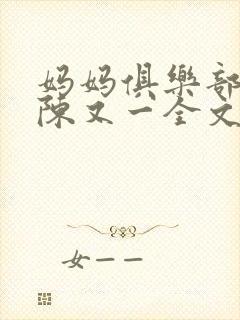 妈妈俱樂部
陳又一全文
女一一